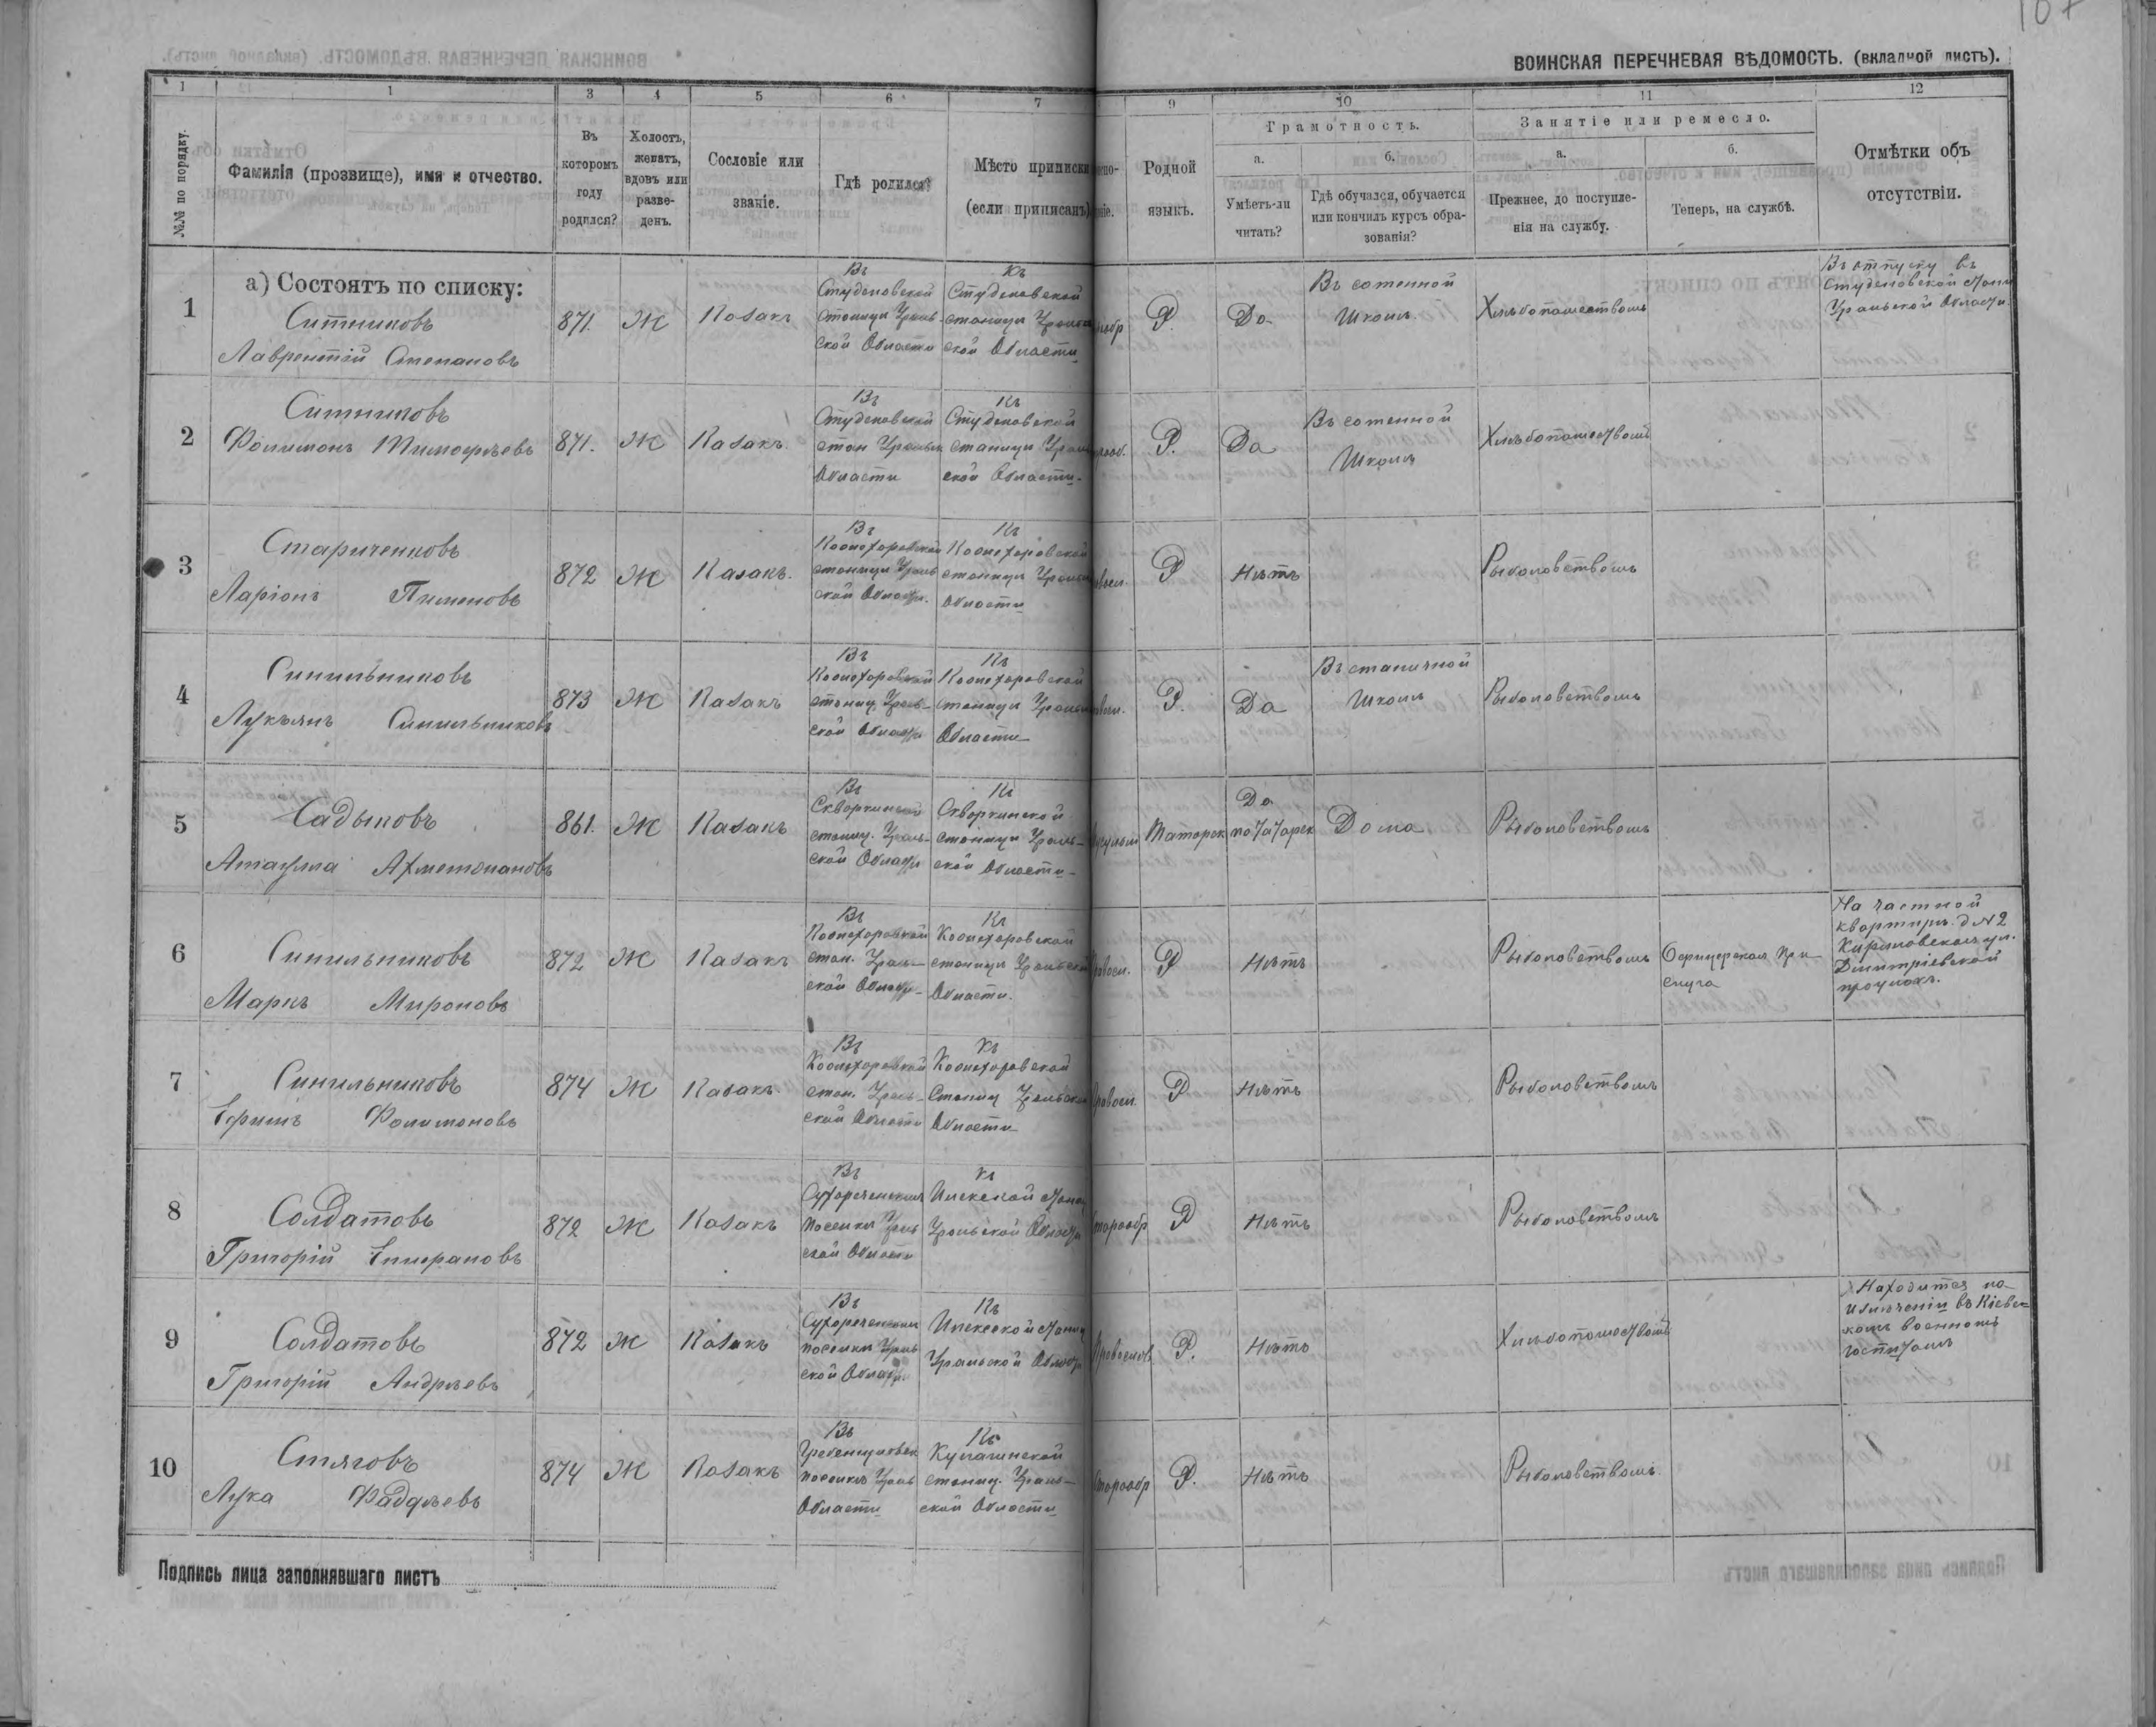 ВОИНСКАЯ ПЕРЕЧНЕВАЯ ВѢДОМОСТЬ. (вкладной листъ).
1 1 3 4 5 6 7 9 10 11 12
№№ по порядку.
Фамилія (прозвище), имя и отчество.
Въ которомъ году родился?
Холостъ, женатъ, вдовъ или разведенъ.
Сословіе или званіе.
Гдѣ родился?
Мѣсто приписки (если приписанъ)
Родной языкъ.
Грамотность.
а. Умѣетъ-ли читать?
б. Гдѣ обучался, обучается или кончилъ курсъ образованія?
Занятіе или ремесло.
а. Прежнее, до поступленія на службу.
б. Теперь, на службѣ.
Отмѣтки объ отсутствіи.
а) Состоятъ по списку:
1
Ситниковъ
Лаврентій Степановъ
871. Ж Казакъ
Въ Студеновской станицы Уральской Области
Къ Студеновской станицы Уральской Области
Р. Да
Въ сотенной Школѣ
Хлѣбопашествомъ
Въ отпуску въ Студеновской Уральской Области.
2
Ситниковъ
Филимонъ Тимофѣевъ
871. Ж Казакъ.
Въ Студеновской стан Уральск Области
Къ Студеновской станицы Уральской Области.
Р. Да
Въ сотенной Школѣ
Хлѣбопашествомъ
3
Стариченковъ
Ларіонъ Пименовъ
872 Ж Казакъ.
Въ станицы Уральской Област.
Къ станицы Области
Р Нѣтъ
Рыболовствомъ
4
Синильниковъ
Лукьянъ Синильниковъ
873 Ж Казакъ
Въ станиц Уральской Област
Къ станицы Области
Р. Да
Въ станичной Школѣ
Рыболовствомъ
5
Садыковъ
Атаулла
861. Ж Казакъ
Въ Скворкинской станиц. Уральской Област
Къ Скворкинской станицы Уральской Области
Татарск
Да по татарск
Дома
Рыболовствомъ
6
Синильниковъ
Маркъ Мироновъ
872 Ж Казакъ
Въ стан. Уральской Област
Къ станицы Уральской Области.
Р Нѣтъ
Рыболовствомъ
Офицерская прислуга
На частной квартирѣ. д N 2 ул. Дмитріевской
7
Синильниковъ
Ефимъ Филимоновъ
874 Ж Казакъ.
Въ стан. Уральской Области
Къ Станиц Уральской Области
Р Нѣтъ
Рыболовствомъ
8
Солдатовъ
Григорій Епифановъ
872 Ж Казакъ
Въ Сухореченскомъ поселкѣ Уральской Области
Къ Илекской Уральской Области
Р Нѣтъ
Рыболовствомъ
9
Солдатовъ
Григорій Андрѣевъ
872 Ж Казакъ
Въ Сухореченскомъ поселкѣ Уральской Област.
Къ Илекской Уральской Област
Р. Нѣтъ
Хлѣбопашествомъ
Находится на излѣченіи въ Кіевскомъ военномъ госпиталѣ
10
Стяговъ
Лука Фаддѣевъ
874 Ж Казакъ
Въ поселкѣ Ураль Области
Къ Кулагинской станиц. Уральской Области
Р. Нѣтъ
Рыболовствомъ.
Подпись лица заполнявшаго листъ